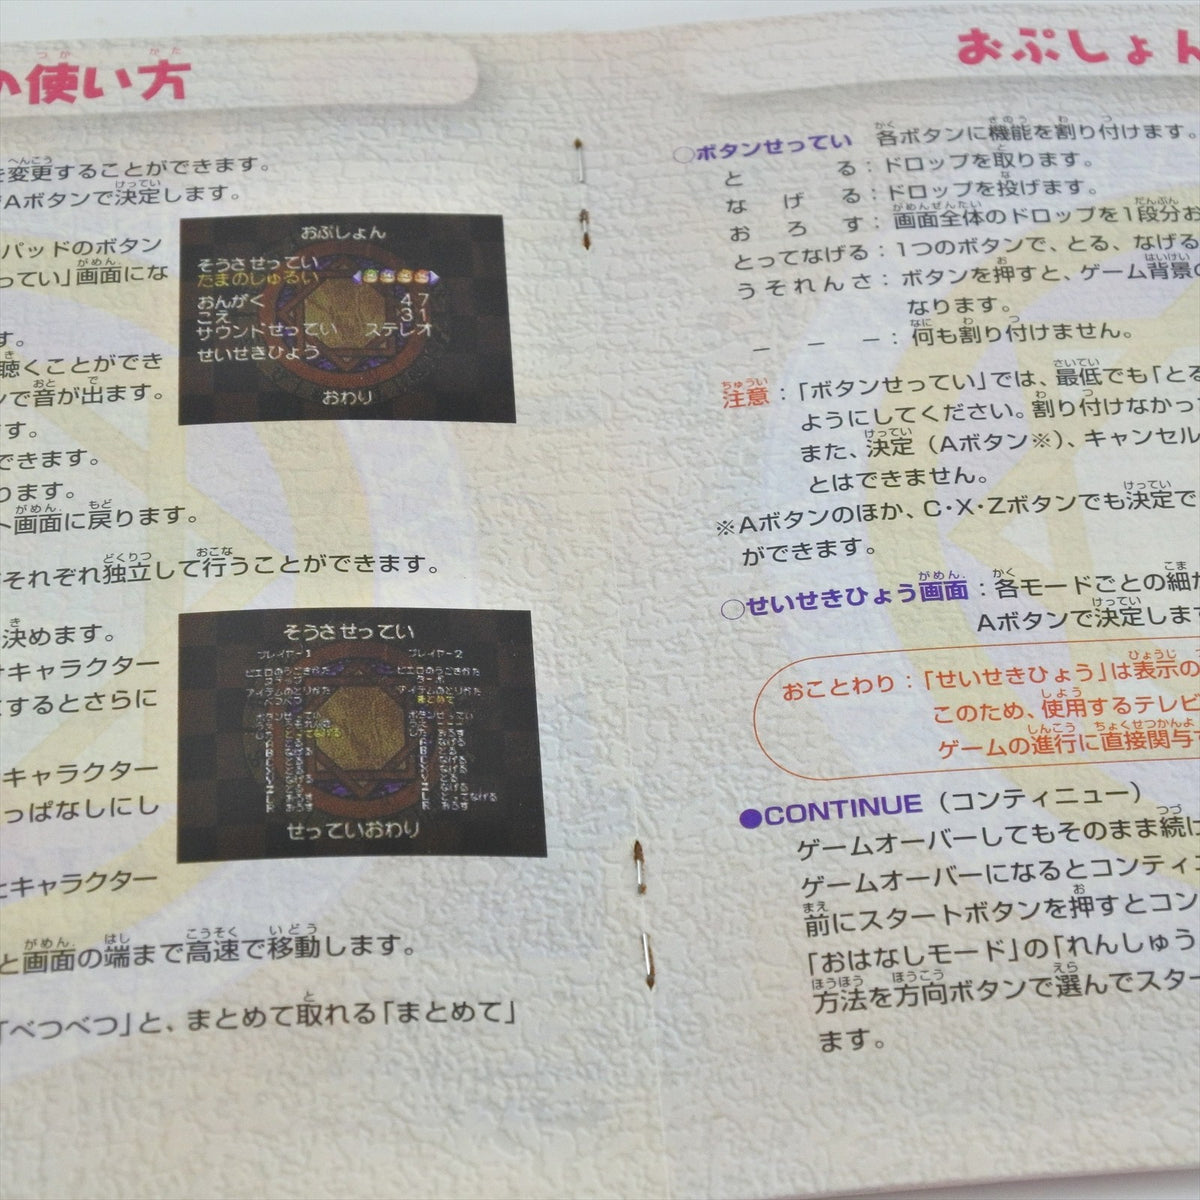 の使い方
を変更することができます。
Aボタンで決定します。
パッドのボタン
ってい」画面にな
す。
聴くことができ
ンで音が出ます。
す。
できます。
ります。
ト画面に戻ります。
それぞれ独立して行うことができます。
決めます。
キャラクター
するとさらに
キャラクター
っぱなしにし
とキャラクター
と画面の端まで高速で移動します。
「べつべつ」と、まとめて取れる「まとめて」
おぷしょん
そうさせってい
たまのしゅるい
おんがく 47
こえ 31
サウンドせってい ステレオ
せいせきひょう
おわり
そうさせってい
プレイヤー1 プレイヤー2
ピエロのうごきかた ピエロのうごきかた
アイテムのとりかた アイテムのとりかた
べつべつ まとめて
ボタンせってい ボタンせってい
せっていおわり
おぷしょん
○ボタンせってい 各ボタンに機能を割り付けます。
とる：ドロップを取ります。
なげる：ドロップを投げます。
おろす：画面全体のドロップを1段分お
とってなげる：1つのボタンで、とる、なげる
うそれんさ：ボタンを押すと、ゲーム背景の
なります。
ーーー：何も割り付けません。
注意：「ボタンせってい」では、最低でも「とる
ようにしてください。割り付けなかっ
また、決定（Aボタン※）、キャンセル
とはできません。
※Aボタンのほか、C・X・Zボタンでも決定で
ができます。
○せいせきひょう画面：各モードごとの細か
Aボタンで決定しま
おことわり：「せいせきひょう」は表示の
このため、使用するテレビ
ゲームの進行に直接関与す
●CONTINUE（コンティニュー）
ゲームオーバーしてもそのまま続け
ゲームオーバーになるとコンティニ
前にスタートボタンを押すとコン
「おはなしモード」の「れんしゅう
方法を方向ボタンで選んでスター
ます。